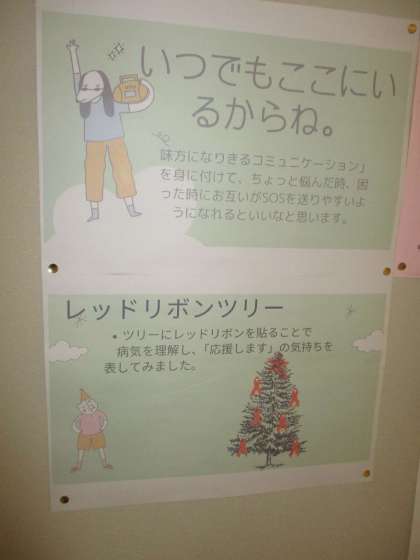 いつでもここにい
るからね。
味方になりきるコミュニケーション」
を身に付けて、ちょっと悩んだ時、困
った時にお互いがSOSを送りやすいよ
うになれるといいなと思います。
レッドリボンツリー
• ツリーにレッドリボンを貼ることで
病気を理解し、「応援します」の気持ちを
表してみました。